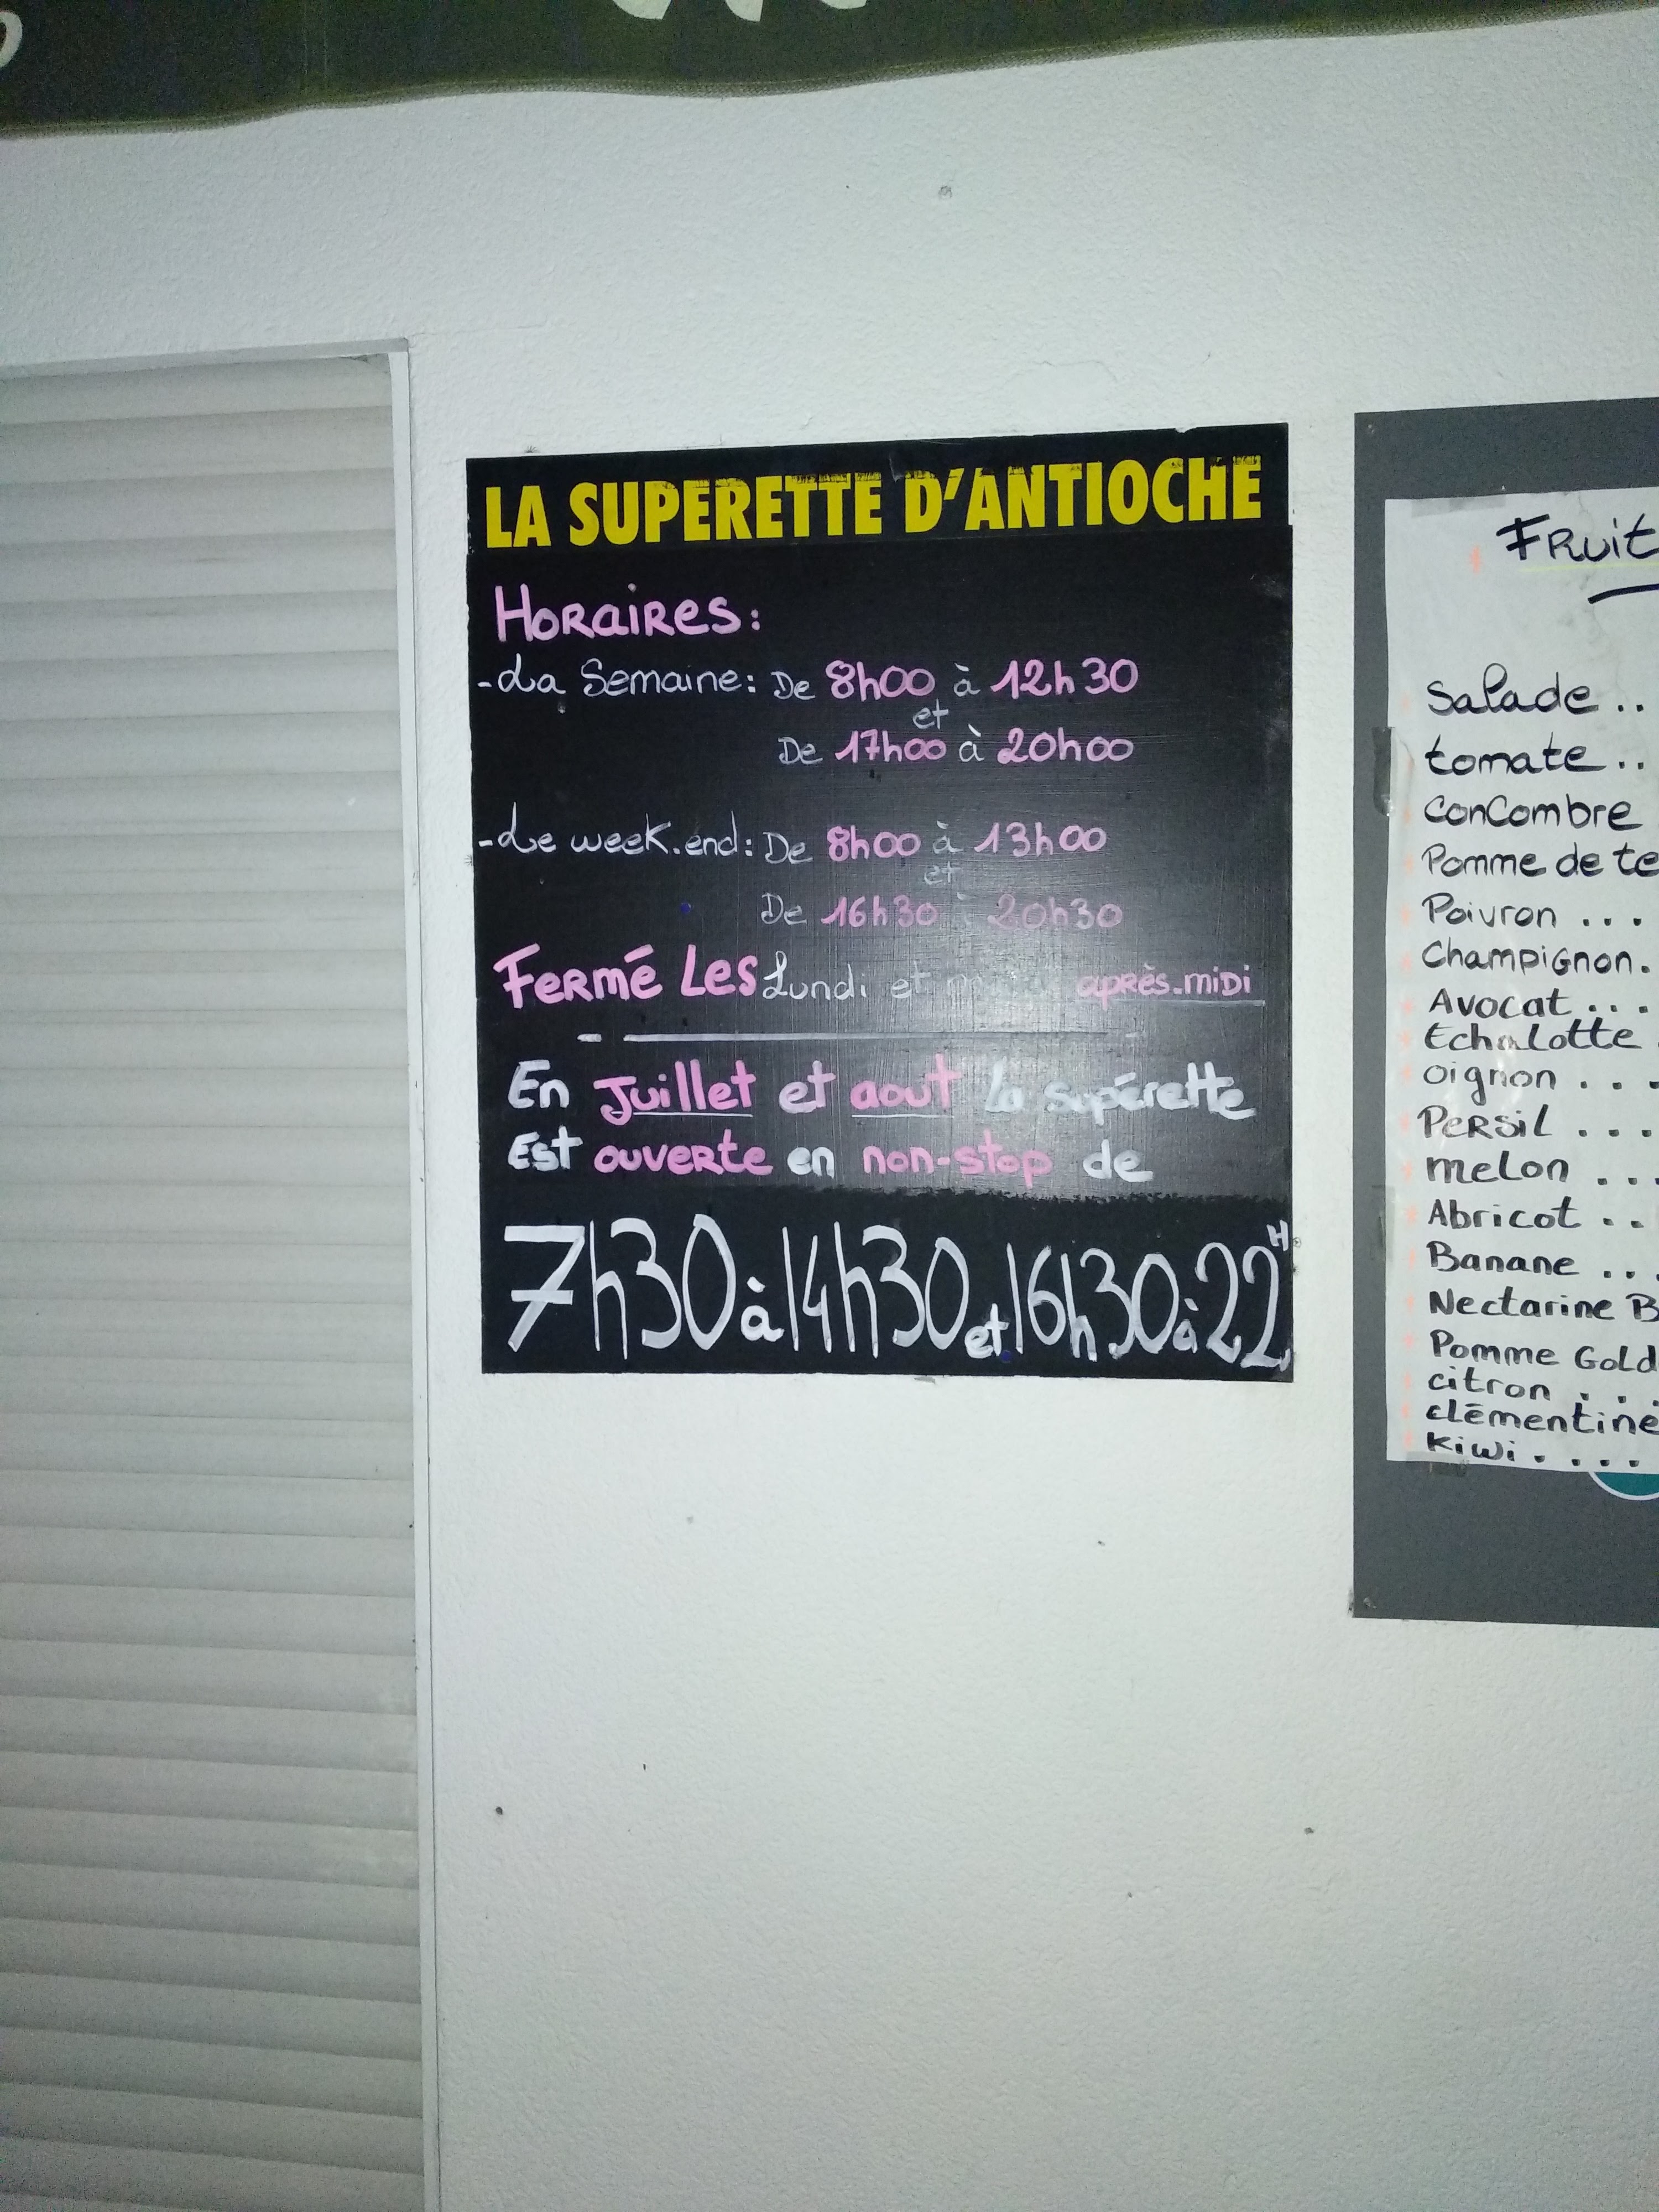 LA SUPERETTE D'ANTIOCHE
HORaiRes:
-La Semaine: De 8h00 à 12h30
et
De 17h00 à 20h00
-Le week.end: De 8h00 à 13h00
et
De 16h30 à 20h30
Fermé Les Lundi et après.miDi
En Juillet et aout la supérette
Est ouverte en non-stop de
7h30 à 14h30 et 16h30 à 22H
FRuit
Salade ..
tomate ..
ConCombre
Pomme de te
Poivron ...
Champignon.
Avocat ...
Echalotte .
oignon ...
PeRSiL ...
meLon ...
Abricot ..
Banane ...
Nectarine B
Pomme GoLd
citron ...
clémentine
kiwi ....